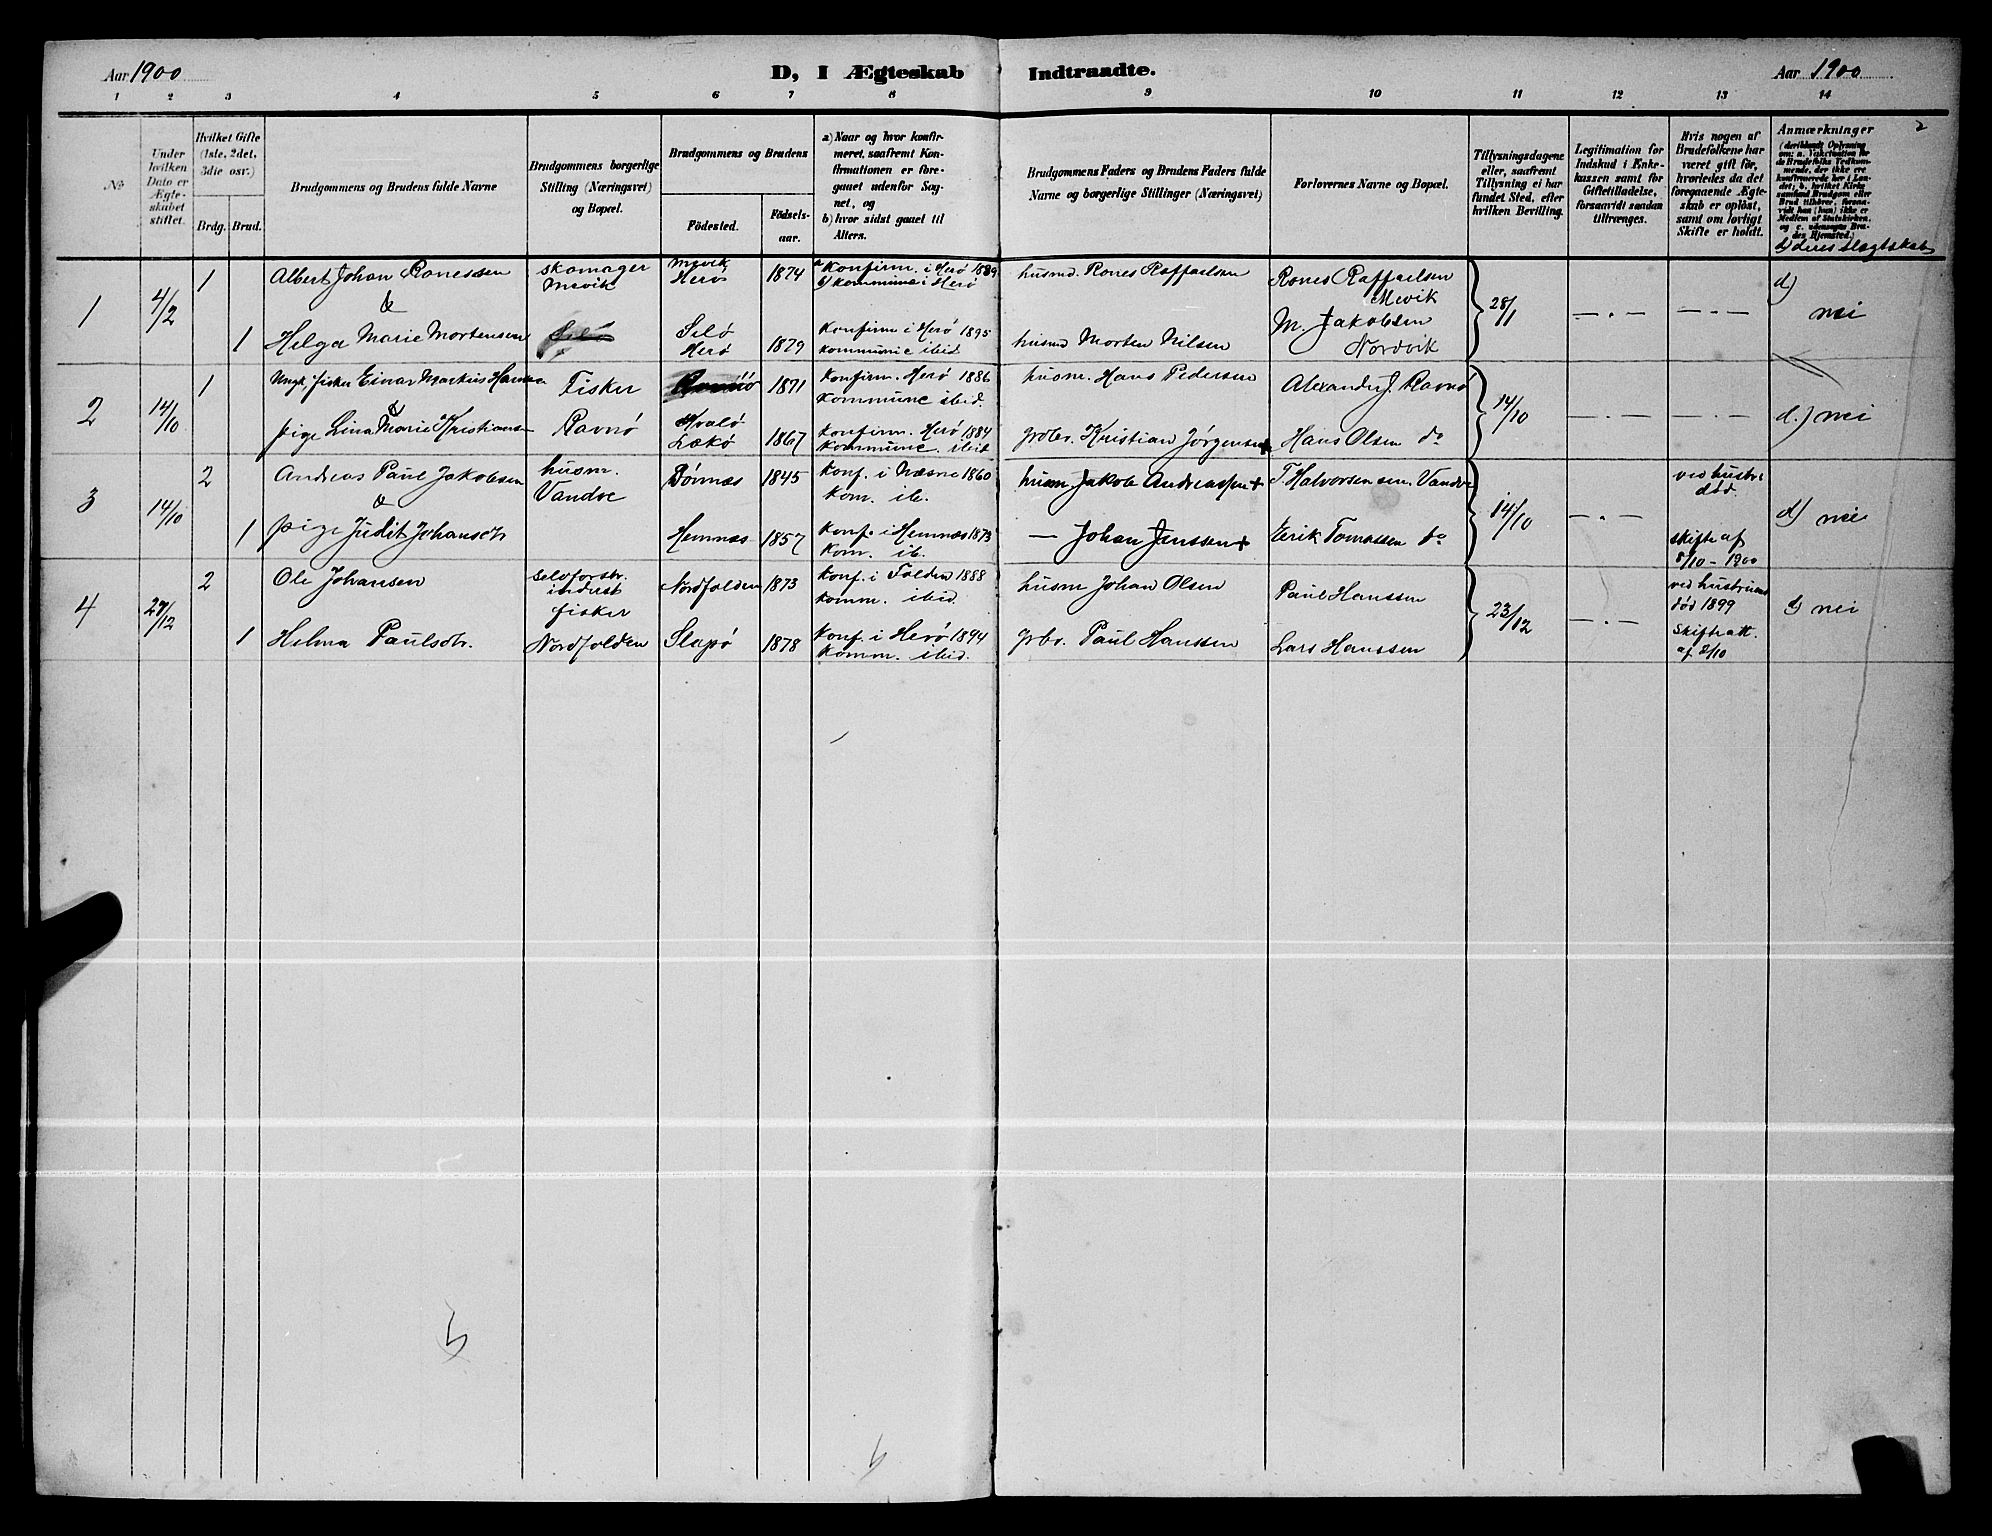 Aar 1900
D, I Ægteskab Indtraadte.
Aar 1900
1 2 3 4 5 6 7 8 9 10 11 12 13 14
2
№
Under hvilken Dato er Ægteskabet stiftet.
Hvilket Gifte (1ste, 2det, 3die osv.)
Brdg. Brud.
Brudgommens og Brudens fulde Navne
Brudgommens borgerlige Stilling (Næringsvei) og Bopæl.
Brudgommens og Brudens
Födested.
Födselsaar.
a) Naar og hvor konfirmeret, saafremt Konfirmationen er foregaaet udenfor Sognet, og
b) hvor sidst gaaet til Alters.
Brudgommens Faders og Brudens Faders fulde Navne og borgerlige Stillinger (Næringsvei)
Forlovernes Navne og Bopæl.
Tillysningsdagene eller, saafremt Tillysning ei har fundet Sted, efter hvilken Bevilling.
Legitimation for Indskud i Ænkekassen samt for Giftetilladelse, forsaavidt saadan tiltrænges.
Hvis nogen af Brudefolkene har været gift för, hvorledes da det foregaaende Ægteskab er oplöst, samt om lovligt Skifte er holdt.
Anmærkninger
(deriblandt Oplysning om: a. Vaksination for de Brudefolks Vedkommende, der ikke ere konfirmerede her i Landet; b. hvilket Kirkesamfund Brudgom eller Brud tilhörer, forsaavidt han (hun) ikke er Medlem af Statskirken, og c. udensogns Brudes Hjemsted.)
d) deres slægtskab
1 4/2 1 Albert Johan Ronessen skomager Mevik Mevik Herö 1874 a konfirm. i Herö 1889 b) kommune i Herö husmd Rones Raffaelsen Rones Raffaelsen Mevik 28/1 — . — — . — d) nei
&
1 Helga Marie Mortensen Selö Herö 1879 konfirm i Herö 1895 kommunie ibid husmd Morten Nilsen M. Jakobsen Nordvik
2 14/10 1 Ungk. fisker Einar Markus Hansen Fisker 1871 konfirm. Herö 1886 kommune ibid. husm. Hans Pedersen Alexander J. Ravnö 14/10 — . — — . — d.) nei
&
pige Lina Marie Kristians Ravnö Hvalö Lækö 1867 konfirm. Herö 1884 kommune. ibid grbr. Kristian Jørgensen + Hans Olsen do
3 14/10 2 Andreas Paul Jakobsen husm. Vandve Dönnæs 1845 konf. i Næsne 1860 kom. ib. husm. Jakob Andreassen + T. Halvorsen sen. Vandve 14/10 — . — ved hustrus död. d) nei
&
1 pige Judit Johansdtr Hemnæs 1857 konf. i Hemnæs 1873 kom. ib. — Johan Janssen + Erik Tomassen do skifteaf 8/10 - 1900
4 27/12 2 Ole Johansen selvforstr. inderst fisker Nordfolden 1873 konf. i Folden 1888 komm. ibid. husm Johan Olsen Paul Hanssen 23/12 — . — ved hustruens död 1899 d) nei
1 Helma Paulsdtr. Nordfolden Slapö 1878 konf. i Herö 1894 komm. ibid. grbr. Paul Hanssen Lars Hanssen skifteatt. af 2/10